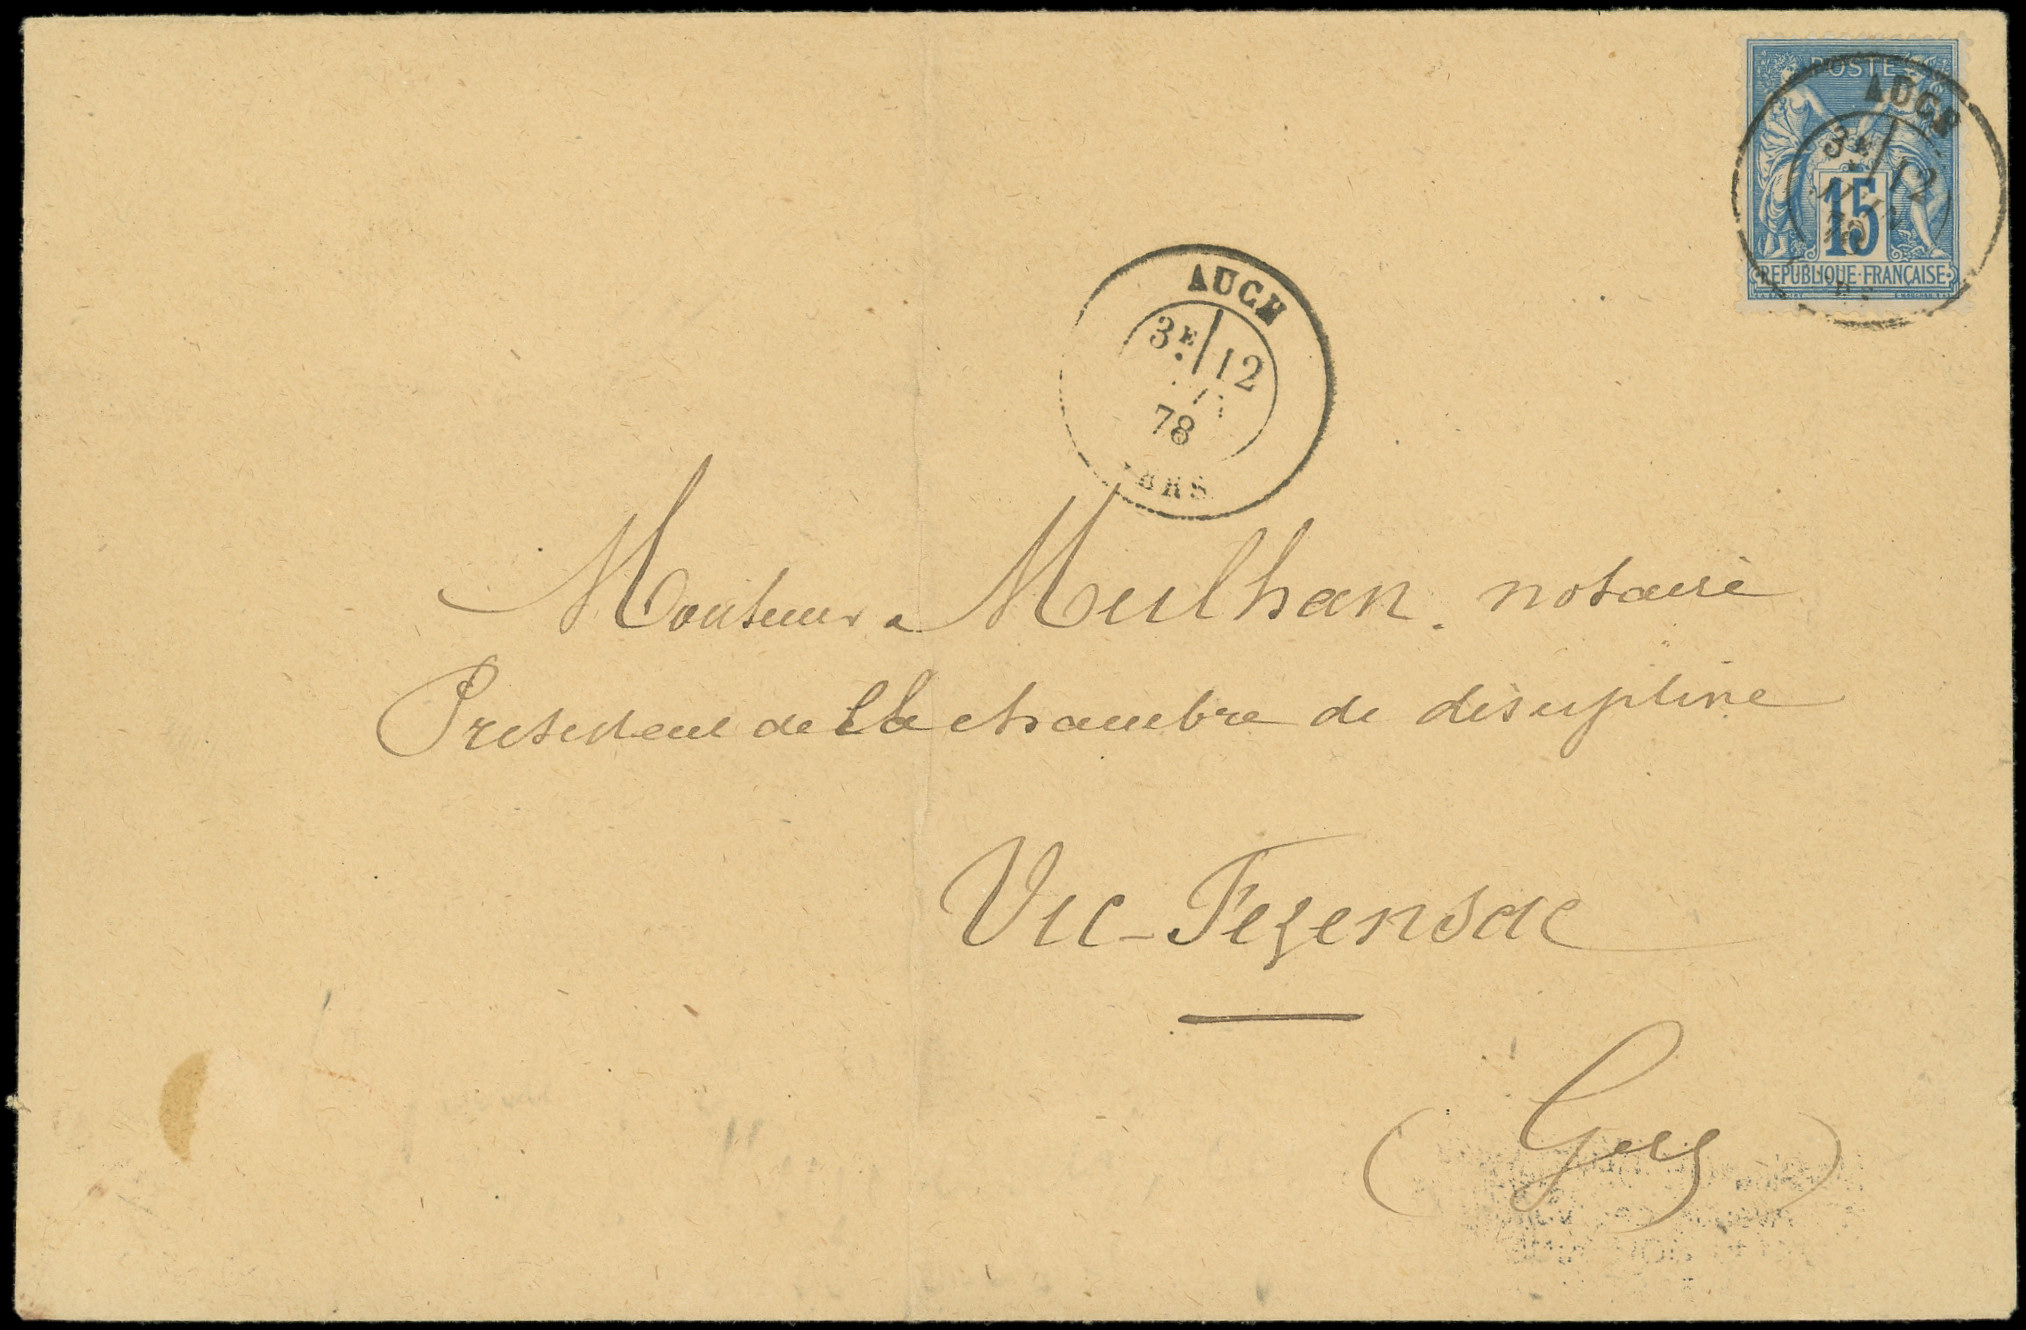 POSTE
AUCH
3E 12
15
REPUBLIQUE FRANÇAISE
AUCH
3E 12
78
Monsieur Mulhan. notaire
President de la chambre de discipline
Vic-Fezensac
(Gers)